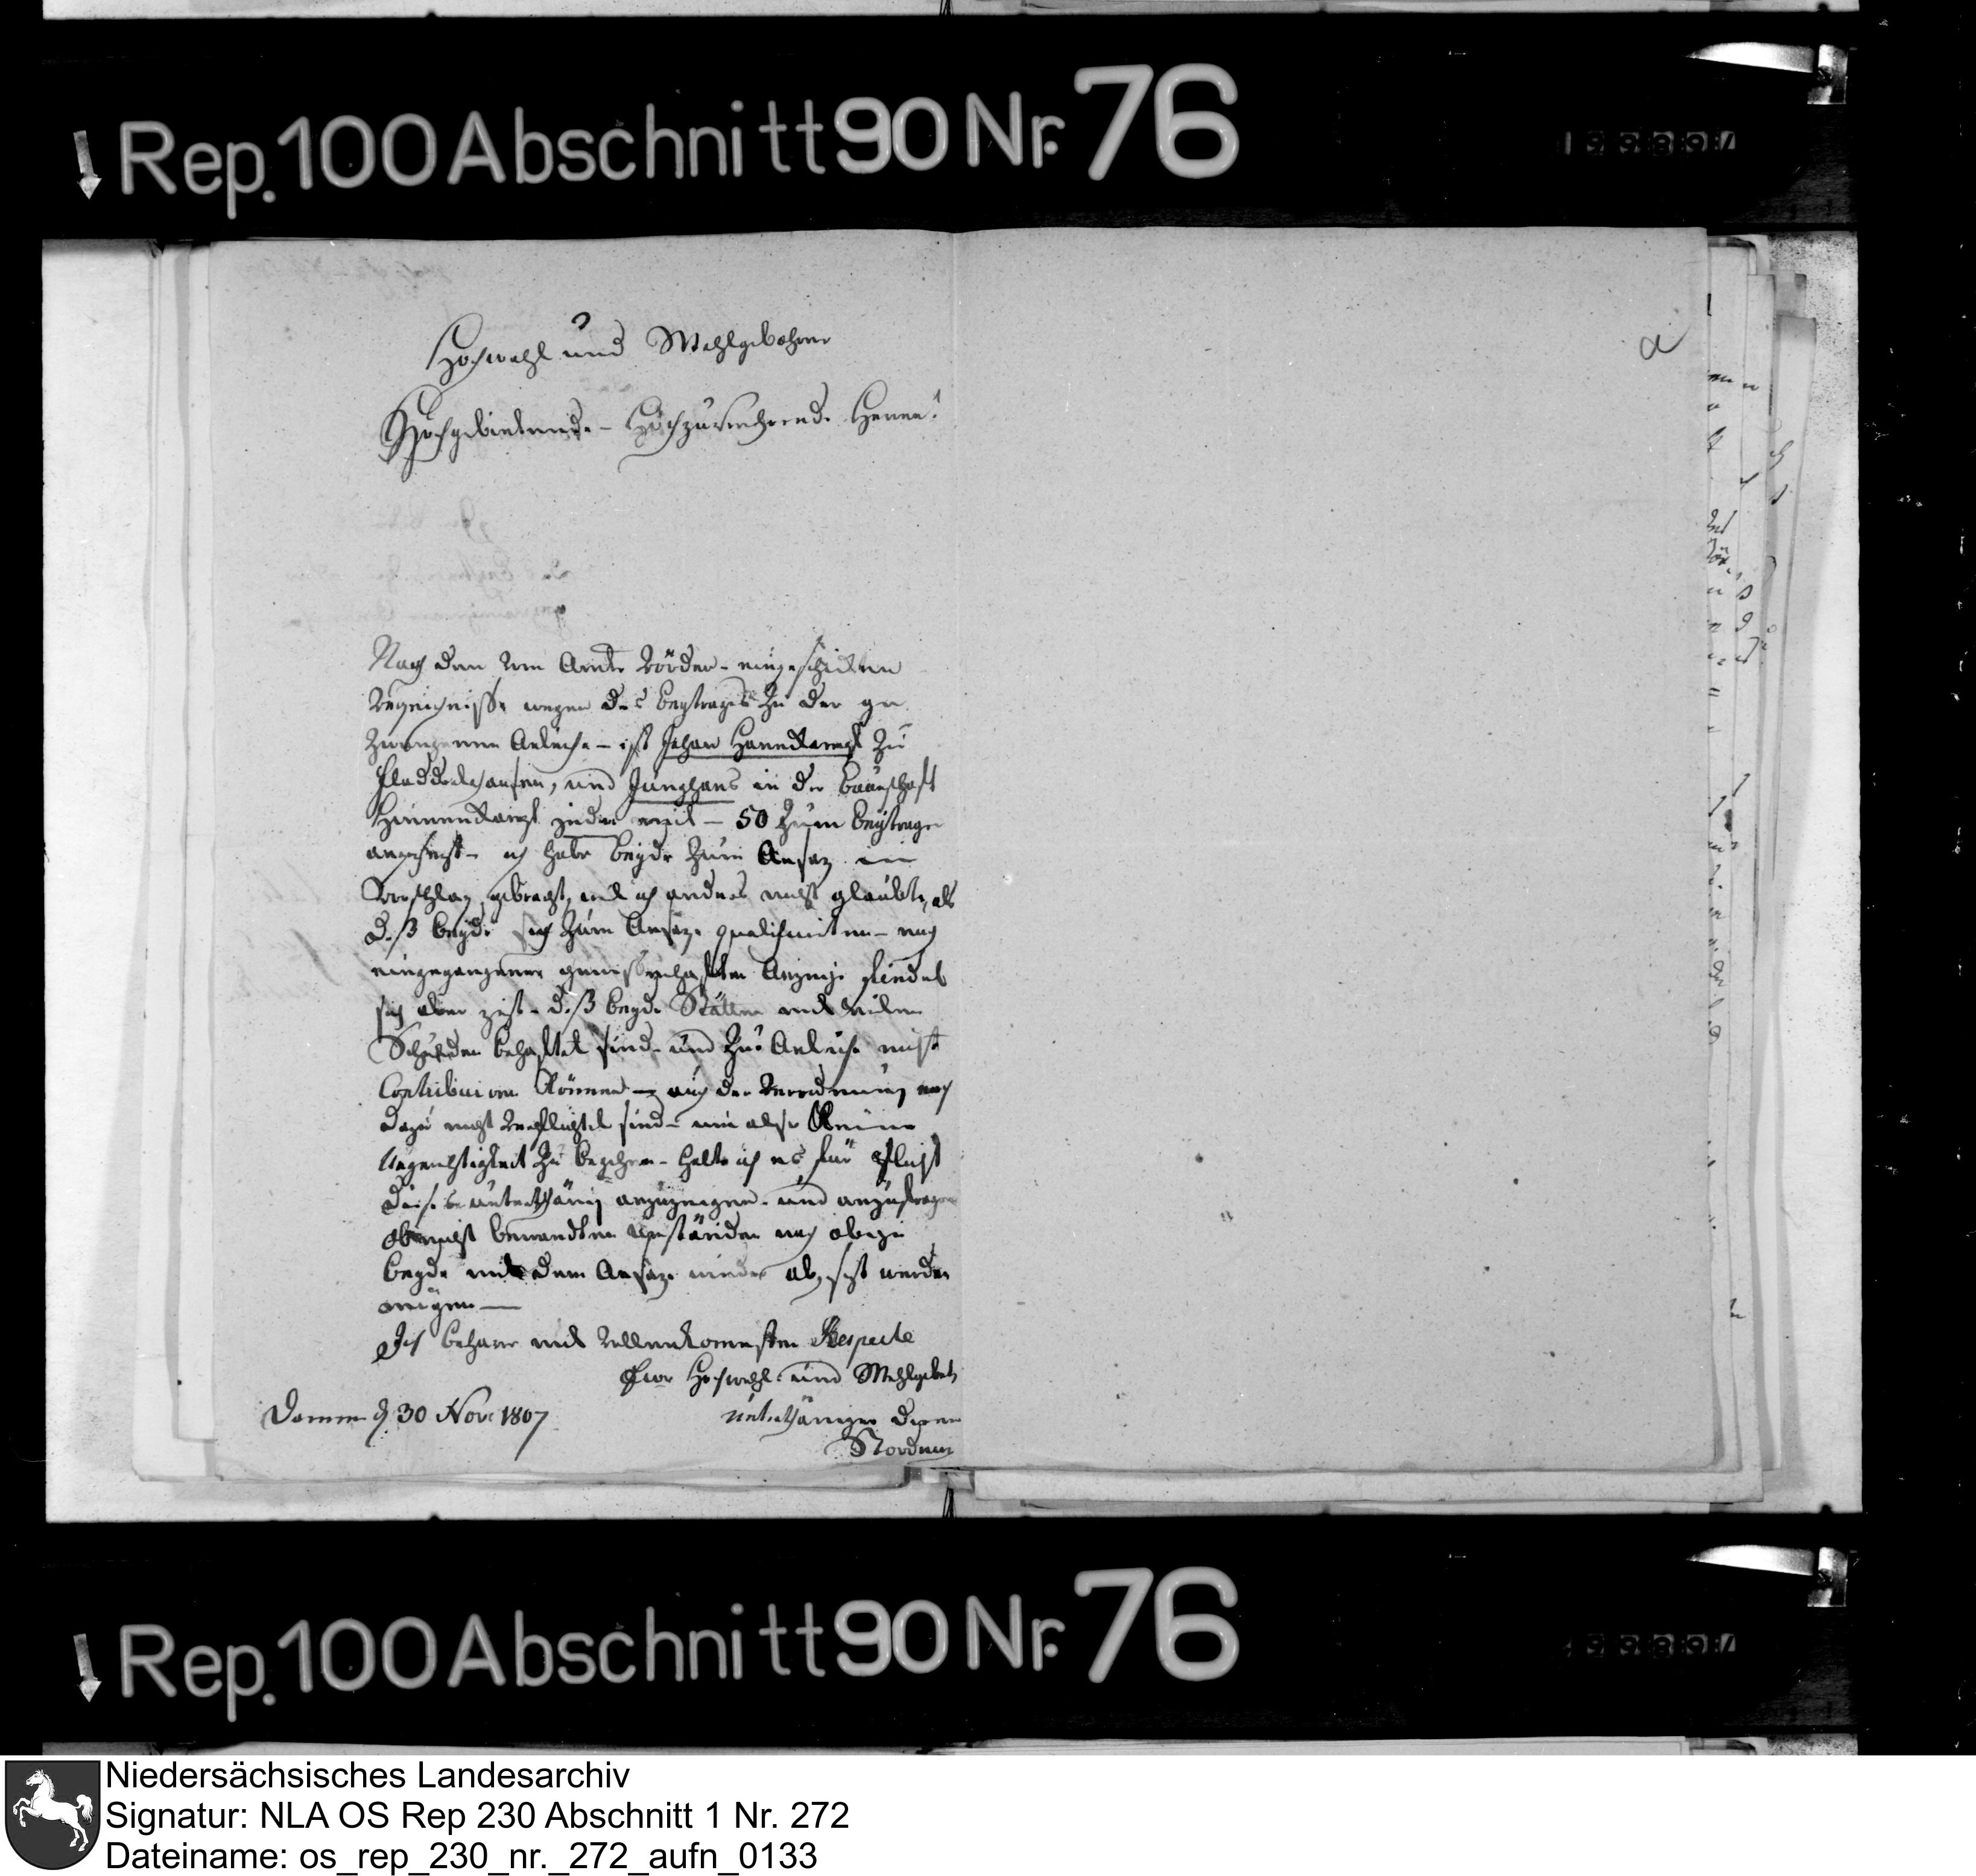 Rep. 100 Abschnitt 90 Nr. 76
a
Hochwohl und Wohlgebohrne
Hochgebietende - Höchzuverehrende Herrn!
Nach dem vom Amte Vörden - eingeschickten
Verzeichniße wegen des Beytrages zu der ge
zwungenen Anleihe - ist Johan Honnkamp zu
Fladderlohausen, und Junghans in der Bauerschaft
Hinnenkamp jeder mit - 50 zum Beytrage
angesezt - ich habe beyde zum Ansaz in
Vorschlag gebracht, weil ich anders nicht glaubte, als
daß beyde sich zum Ansaze qualificirten - nach
eingegangener gewissenhaften Anzeige findet
sich aber jezt - daß beyde Stätten mit vielen
Schulden behaftet sind - und zur Anleihe nicht
Contribuiren können - auch der Verordnung nach
dazu nicht verpflichtet sind - um also keine
Ungerechtigkeit zu begehen - halte ich es für Pflicht
dieses unterthänig anzuzeigen - und anzufragen
ob nicht bewandten Umständen nach obige
beyde mit dem Ansaze wieder abgesezt werden
mögen —
Ich beharre mit vollenkomesten Respecte
Ewr Hochwohl- und Wohlgeb
Damme d 30 Nov. 1807
unterthäniger Diener
Nordmeir
Rep. 100 Abschnitt 90 Nr. 76
Niedersächsisches Landesarchiv
Signatur: NLA OS Rep 230 Abschnitt 1 Nr. 272
Dateiname: os_rep_230_nr._272_aufn_0133